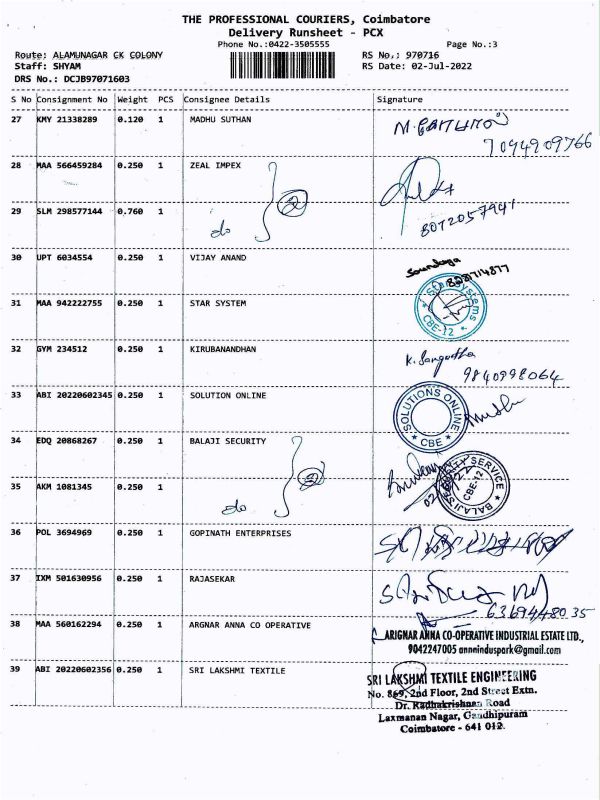 THE PROFESSIONAL COURIERS, Coimbatore
Delivery Runsheet - PCX
Phone No.:0422-3505555 Page No.:3
Route: ALAMUNAGAR CK COLONY RS No.: 970716
Staff: SHYAM RS Date: 02-Jul-2022
DRS No.: DCJB97071603
S No Consignment No Weight PCS Consignee Details Signature
27 KMY 21338289 0.120 1 MADHU SUTHAN
7094909766
28 MAA 566459284 0.250 1 ZEAL IMPEX
2
29 SLM 298577144 0.760 1 do 8072057941
30 UPT 6034554 0.250 1 VIJAY ANAND
Soundarya
31 MAA 942222755 0.250 1 STAR SYSTEM
Star Systems
CBE-12
32 GYM 234512 0.250 1 KIRUBANANDHAN K. Sangeetha
9840998064
33 ABI 20220602345 0.250 1 SOLUTION ONLINE
SOLUTIONS ONLINE
CBE
34 EDQ 20868267 0.250 1 BALAJI SECURITY
BALAJI SECURITY SERVICE
CBE-12
35 AKM 1081345 0.250 1 do
36 POL 3694969 0.250 1 GOPINATH ENTERPRISES
37 IXM 501630956 0.250 1 RAJASEKAR
6369448035
38 MAA 560162294 0.250 1 ARGNAR ANNA CO OPERATIVE
ARIGNAR ANNA CO-OPERATIVE INDUSTRIAL ESTATE LTD.,
9042247005 annainduspark@gmail.com
39 ABI 20220602356 0.250 1 SRI LAKSHMI TEXTILE
SRI LAKSHMI TEXTILE ENGINEERING
No. 869, 2nd Floor, 2nd Street Extn.
Dr. Radhakrishnan Road
Laxmanan Nagar, Gandhipuram
Coimbatore - 641 012.